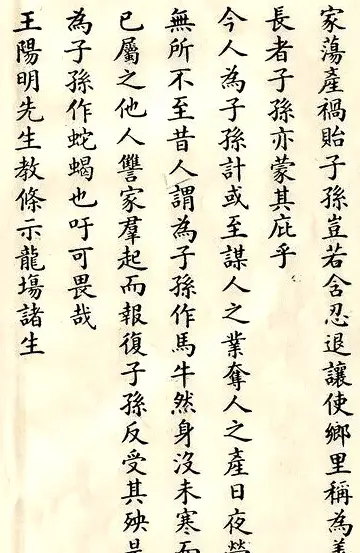 家蕩產禍貽子孫豈若含忍退讓使鄉里稱為善
長者子孫亦蒙其庇乎
今人為子孫計或至謀人之業奪人之產日夜營
無所不至昔人謂為子孫作馬牛然身沒未寒而
已屬之他人讐家羣起而報復子孫反受其殃是
為子孫作蛇蝎也吁可畏哉
王陽明先生教條示龍塲諸生